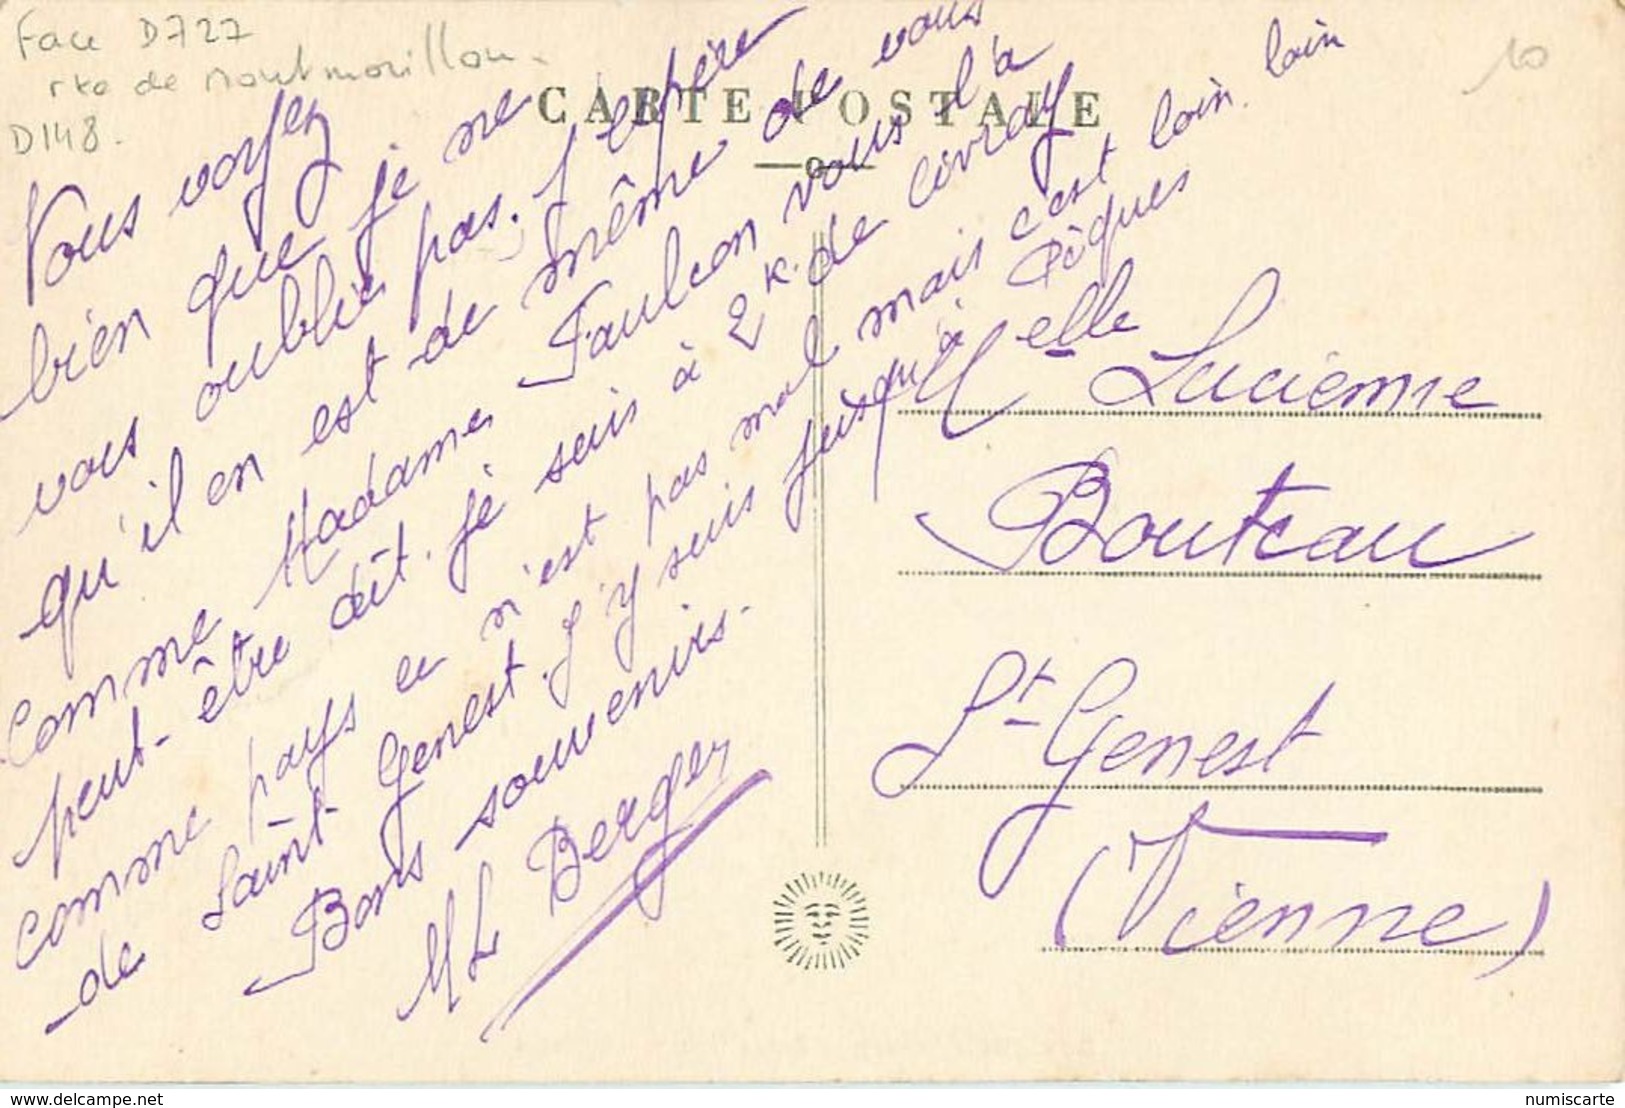 Face D727
rte de Montmorillon.
D148.
10
CARTE POSTALE
Vous voyez
bien que je ne
vous oublie pas. J'espère
qu'il en est de même de vous
Comme Madame Faulcon vous l'a
peut-être dit. je suis à 2k. de Civray
comme pays ce n'est pas mal mais c'est loin. loin
de Saint Genest. J'y suis jusqu'à Pâques
Bons souvenirs.
ML Berger
Melle Lucienne
Bouteau
St-Genest
(Vienne)
www.delcampe.net
numiscarte